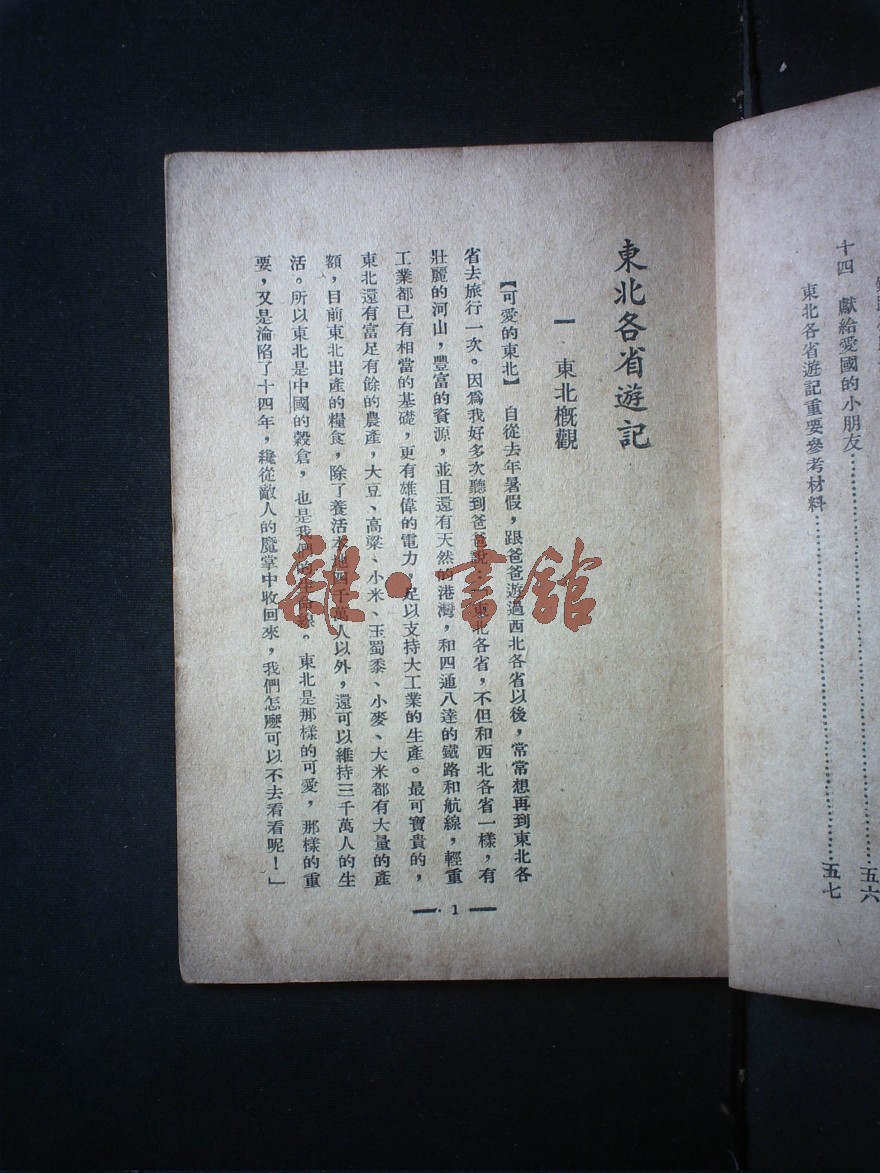 十四　獻給愛國的小朋友…………五六
東北各省遊記重要參考材料…………五七
東北各省遊記
一　東北概觀
【可愛的東北】　自從去年暑假，跟爸爸遊過西北各省以後，常常想再到東北各
省去旅行一次。因爲我好多次聽到爸爸說：「東北各省，不但和西北各省一樣，有
壯麗的河山，豐富的資源，並且還有天然的港灣，和四通八達的鐵路和航線，輕重
工業都已有相當的基礎，更有雄偉的電力，足以支持大工業的生產。最可寶貴的，
東北還有富足有餘的農產，大豆、高粱、小米、玉蜀黍、小麥、大米都有大量的產
額，目前東北出產的糧食，除了養活本地四千萬人以外，還可以維持三千萬人的生
活。所以東北是中國的穀倉，也是我們的生命線。東北是那樣的可愛，那樣的重
要，又是淪陷了十四年，纔從敵人的魔掌中收回來，我們怎麼可以不去看看呢！」
— 1 —
雜·書館